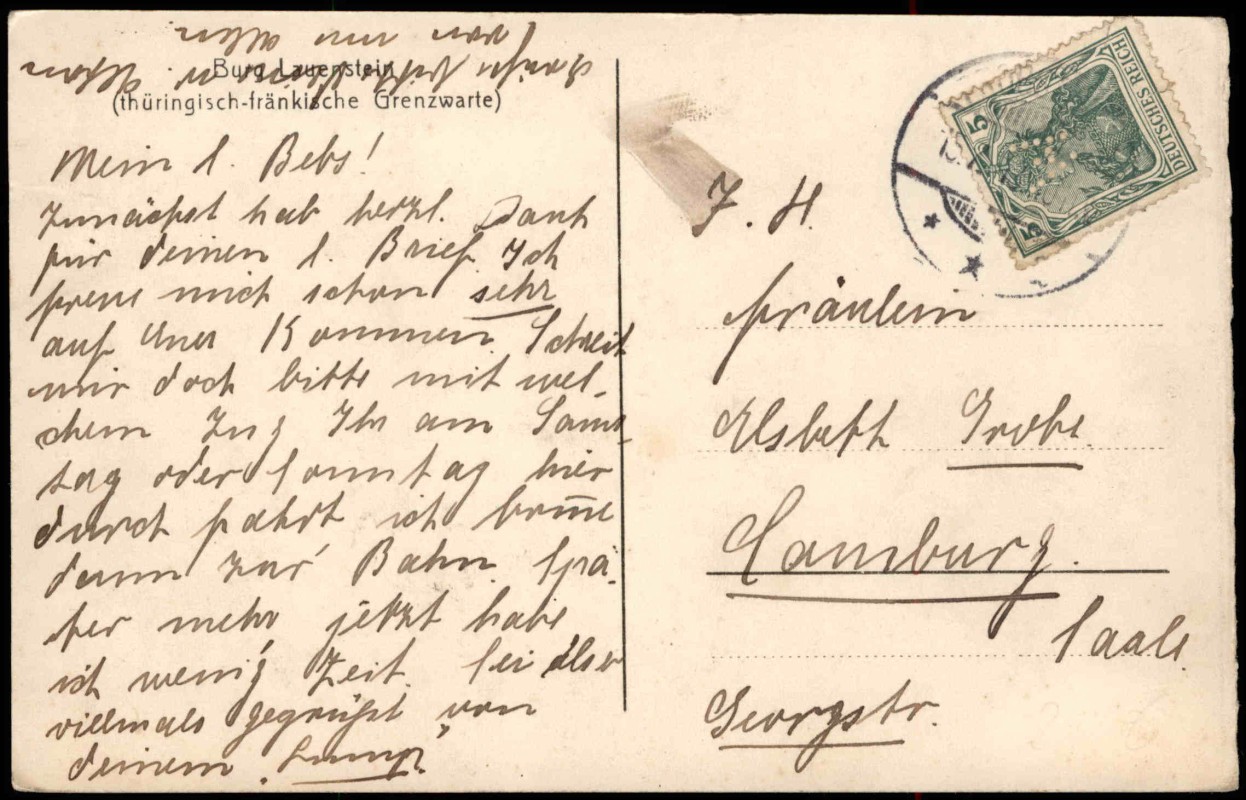 Burg Lauenstein
(thüringisch-fränkische Grenzwarte)
von uns allen
Mein l. Bebs!
Zunächst hab herzl. Dank
für deinen l. Brief. Ich
freue mich schon sehr
auf Euer Kommen. Schreib
mir doch bitte mit wel-
chem Zug Ihr am Sams-
tag oder Sonntag hier
durch fahrt ich komme
dann zur Bahn. Spä-
ter mehr jetzt habe
ich wenig Zeit. Sei also
vielmals gegrüßt von
deinem
DEUTSCHES REICH
5
5
I. H.
Fräulein
Elsbeth Grobe.
Camburg.
Saale.
Georgstr.